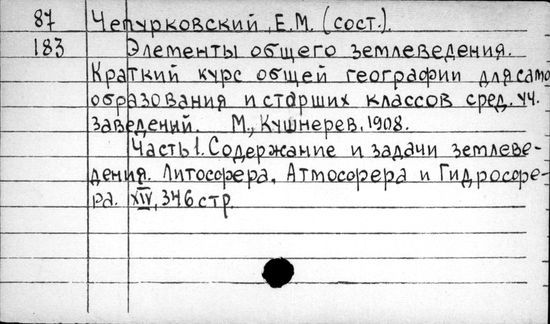 87 Чепурковский, Е.М. (сост.).
183 Элементы общего землеведения.
Краткий курс общей географии для само
образования и старших классов сред. уч.
заведений. М., Кушнерев, 1908.
Часть 1. Содержание и задачи землеве-
дения. Литосфера, Атмосфера и Гидросфе-
ра. XIV, 346 стр.